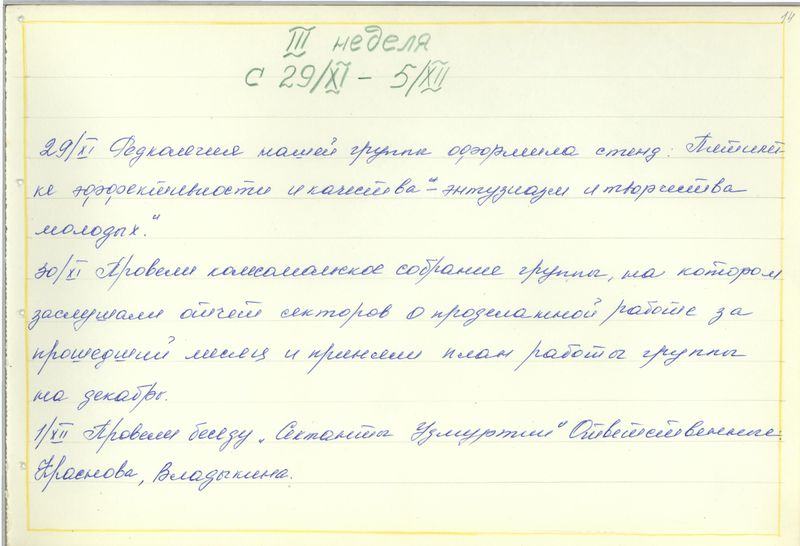 14
III неделя
с 29/XI – 5/XII
29/XI Редколлегия нашей группы оформила стенд: Пятилет-
ке эффективности и качества "– энтузиазм и творчества
молодых."
30/XI Провели комсомольское собрание группы, на котором
заслушали отчет секторов о проделанной работе за
прошедший месяц и приняли план работы группы
на декабрь.
1/XII Провели беседу „Сектанты Удмуртии" Ответственные:
Краснова, Владыкина.